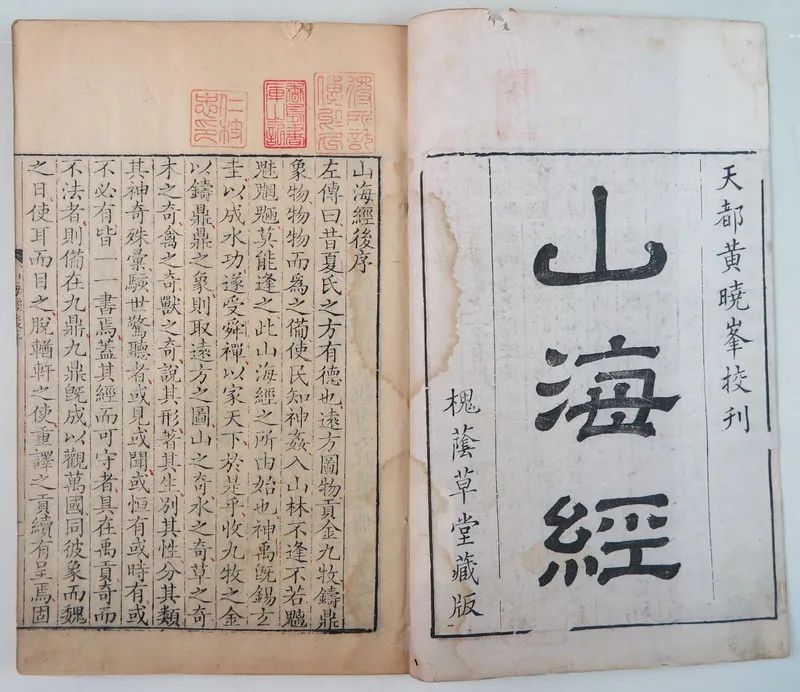 天都黄曉峯挍刊
山海經
槐蔭草堂藏版
山海經後序
左傳曰昔夏氏之方有德也遠方圖物貢金九牧鑄鼎
象物物物而為之備使民知神姦入山林不逢不若魑
魅魍魎莫能逢之此山海經之所由始也神禹旣錫玄
圭以成水功遂受舜禪以家天下於是乎收九牧之金
以鑄鼎鼎之象則取遠方之圖山之奇水之奇草之奇
木之奇禽之奇獸之奇說其形著其生別其性分其類
其神奇殊彙駭世驚聽者或見或聞或恒有或時有或
不必有皆一一書焉蓋其經而可守者具在禹貢奇而
不法者則備在九鼎九鼎旣成以觀萬國同彼象而魏
之日使耳而目之脫輶軒之使重譯之貢續有呈焉固